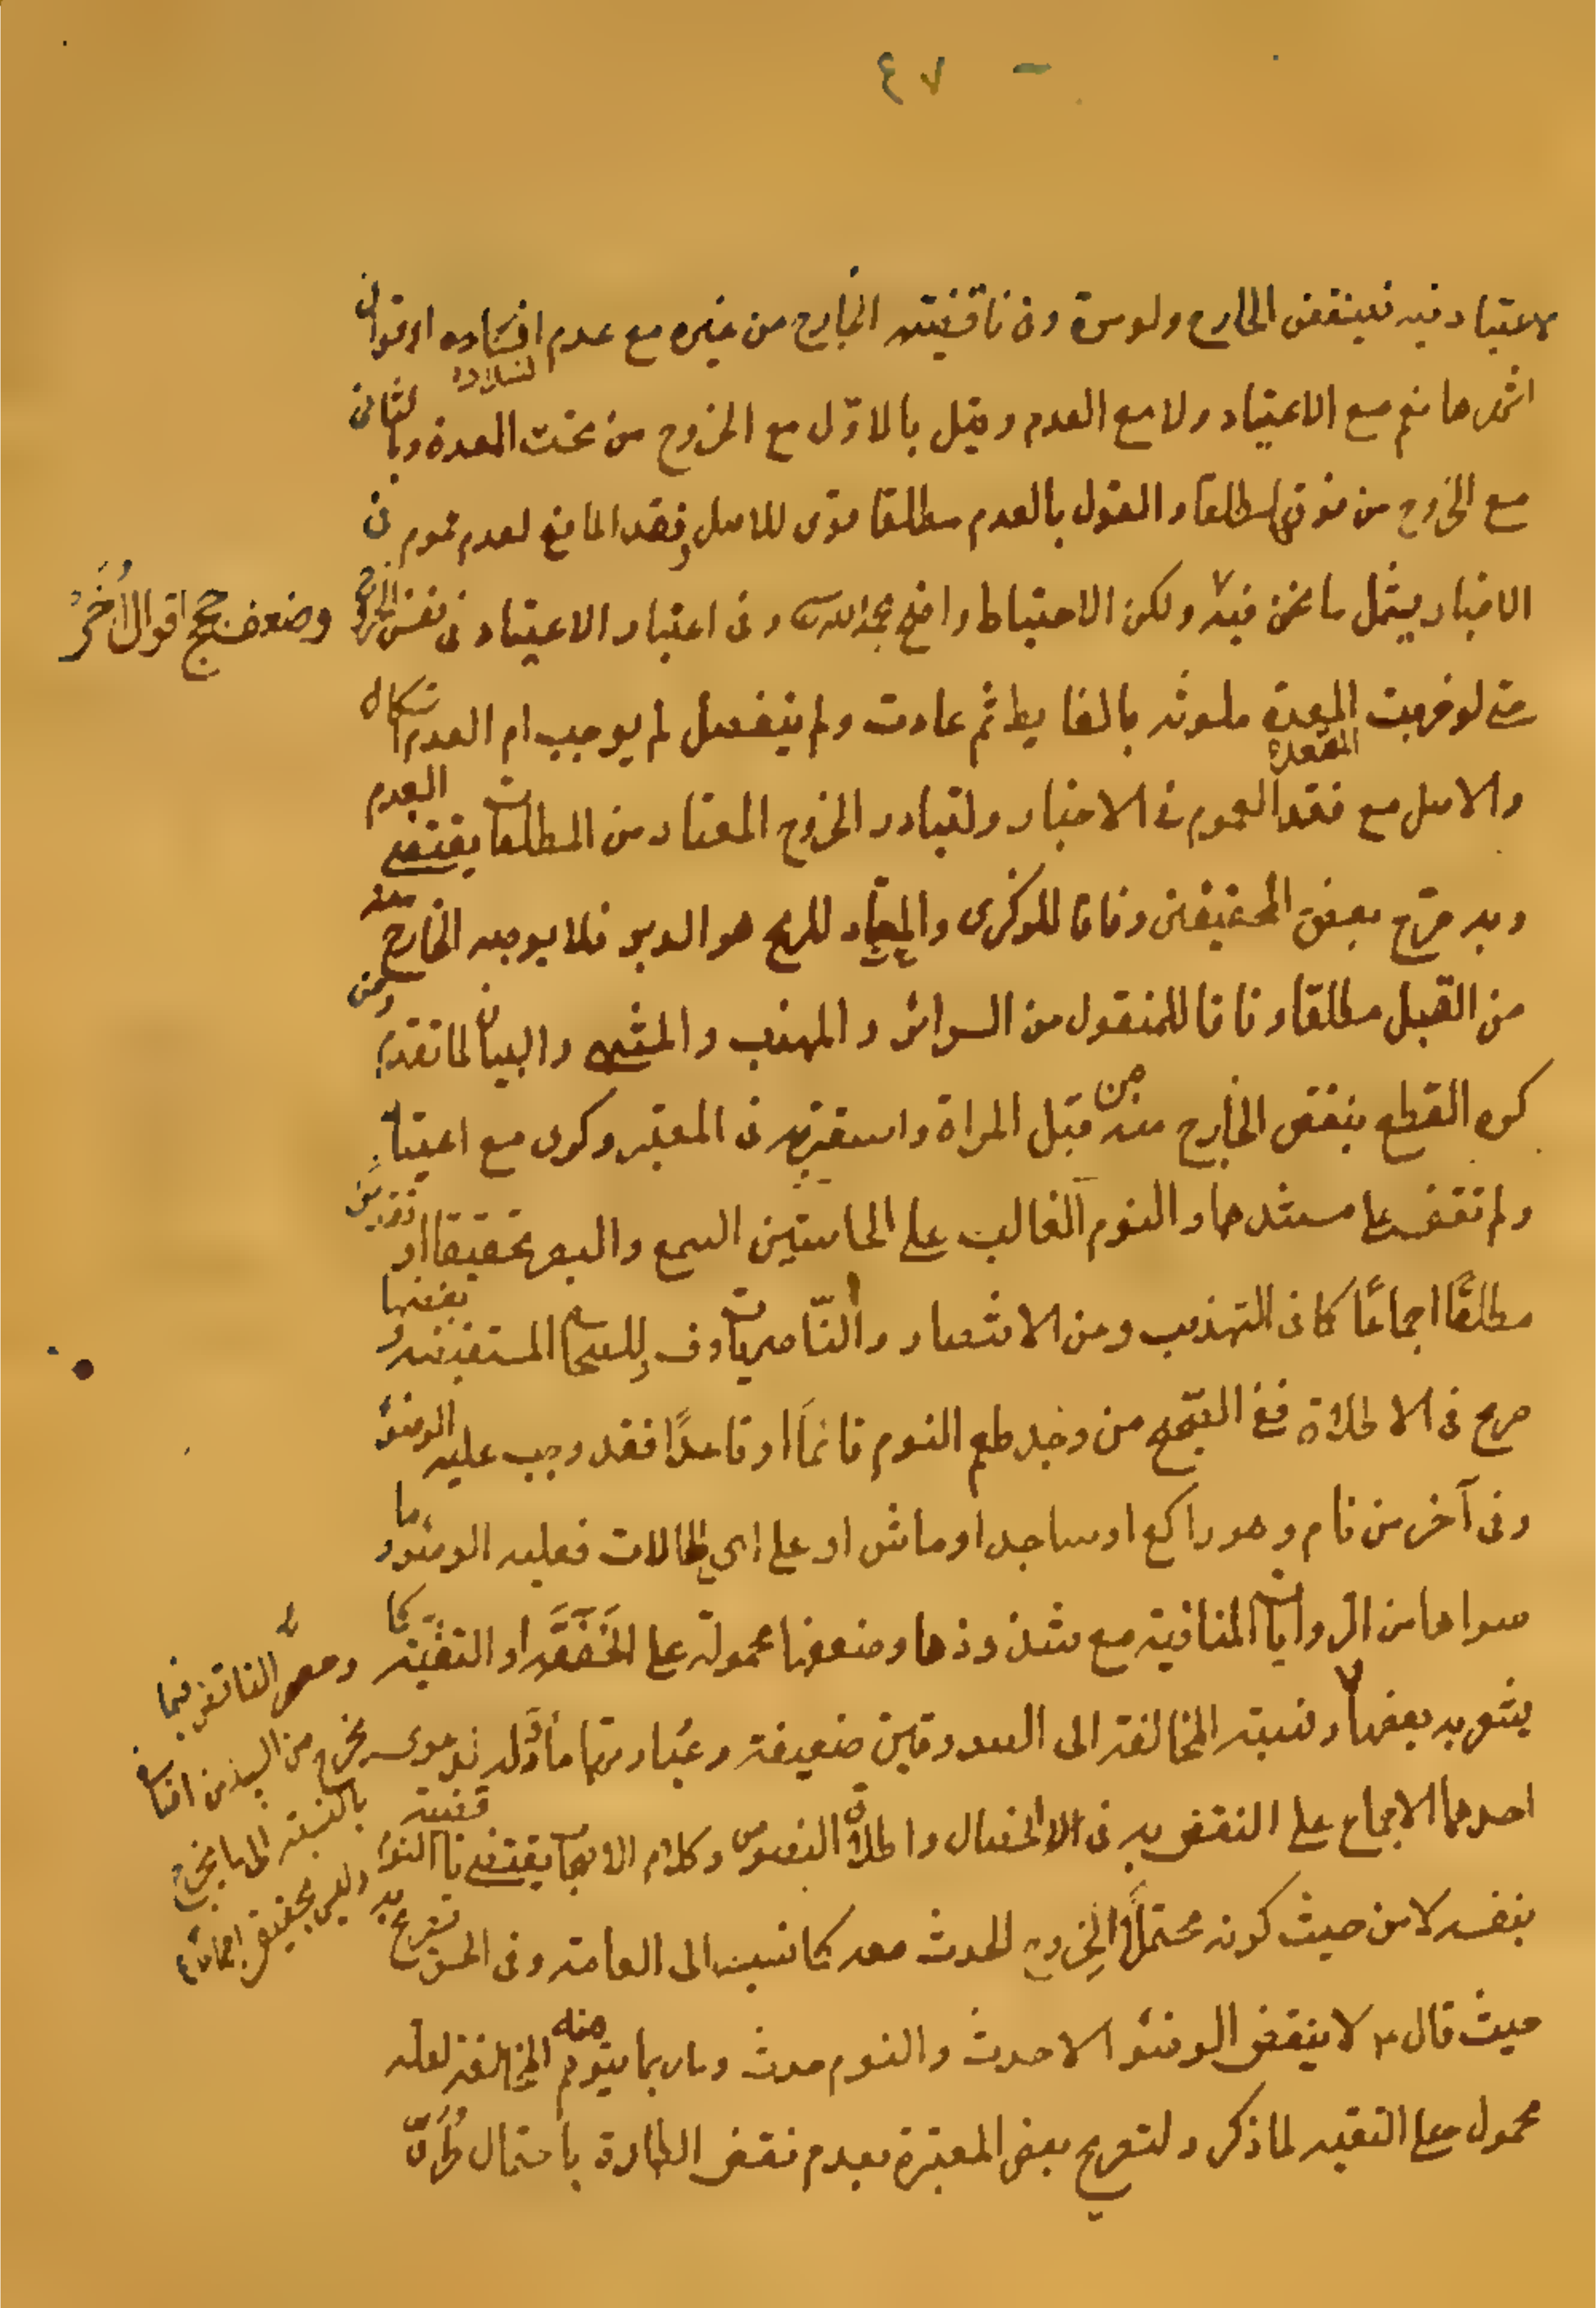 ٤٧
الاعتياد فيه فينقض الخارج ولو مرة وفي ناقضية الخارج من غيره مع عدم انسداده اقوال
انسداده
اشهرها نعم مع الاعتياد ولا مع العدم وقيل بالاول مع الخروج من تحت المعدة وبالثاني
مع الخروج من فوقها مطلقا والقول بالعدم مطلقا قوي للاصل وفقد المانع لعدم عموم في
الاخبار يشمل ما نحن فيه ولكن الاحتياط واضح بحمد الله وفي اعتبار الاعتياد في نفس الخروج
وضعف حجج اقوال أُخَر
حتى لو خرجت المعدة ملوثة بالغايط ثم عادت ولم ينفصل لم يوجب ام العدم اشكال
المقعدة
والاصل مع فقد العموم في الاخبار ولتبادر الخروج المعتاد من المطلقات يقتضي العدم
وبه صرّح بعض المحققين وفاقا للذكرى والمعتاد للريح هو الدبر فلا يوجبه الخارج منه
من القبل مطلقا وفاقا للمنقول من السرائر والمهذب والمنتهى والبيان لما تقدم وعن
كره القطع بنقض الخارج منه من قبل المراة واستقربه في المعتبر وكرى مع اعتياده
ولم نقف على مستندهما والنوم الغالب على الحاستين السمع والبصر تحقيقا او تقديرًا
مطلقًا اجماعًا كما في التهذيب وعن الانتصار والنّاصريات وف وللصحاح المستفيضة وبعضها
صريح في الاطلاق ففي الصّحيح من وجد طعم النوم قائمًا او قاعدًا فقد وجب عليه الوضوء
وفي آخر من نام وهو راكع او ساجد او ماش او على اي الحالات فعليه الوضوء وما
سواها من الروايات المنافية مع شذوذها وضعفها محمولة على الخَفَقَة او التقيّة كما
يشعر به بعضها ونسبة المخالفة الى الصدوقين ضعيفة وعبارتهما مأوّلة لدعوى
احدهما الاجماع على النقض به في الخصال واطلاق النصوص وكلام الاصحاب يقتضي ناقضية النوم
وحصر الناقض فيما
يخرج من السبيلين اضافي
بالنسبة الى ما يخرج
وليس بحقيقي اجماعًا
بنفسه لا من حيث كونه محتملًا لخروج الحدث معه كما نسب الى العامة وفي الحسن تصريح به
حيث قال لا ينقض الوضوء الا حدث والنوم حدث وما ربما يتوهم منه المخالفة لعله
محمول على التقية لما ذكر ولتصريح بعض المعتبرة بعدم نقض الطهارة باحتمال طُرُوّ